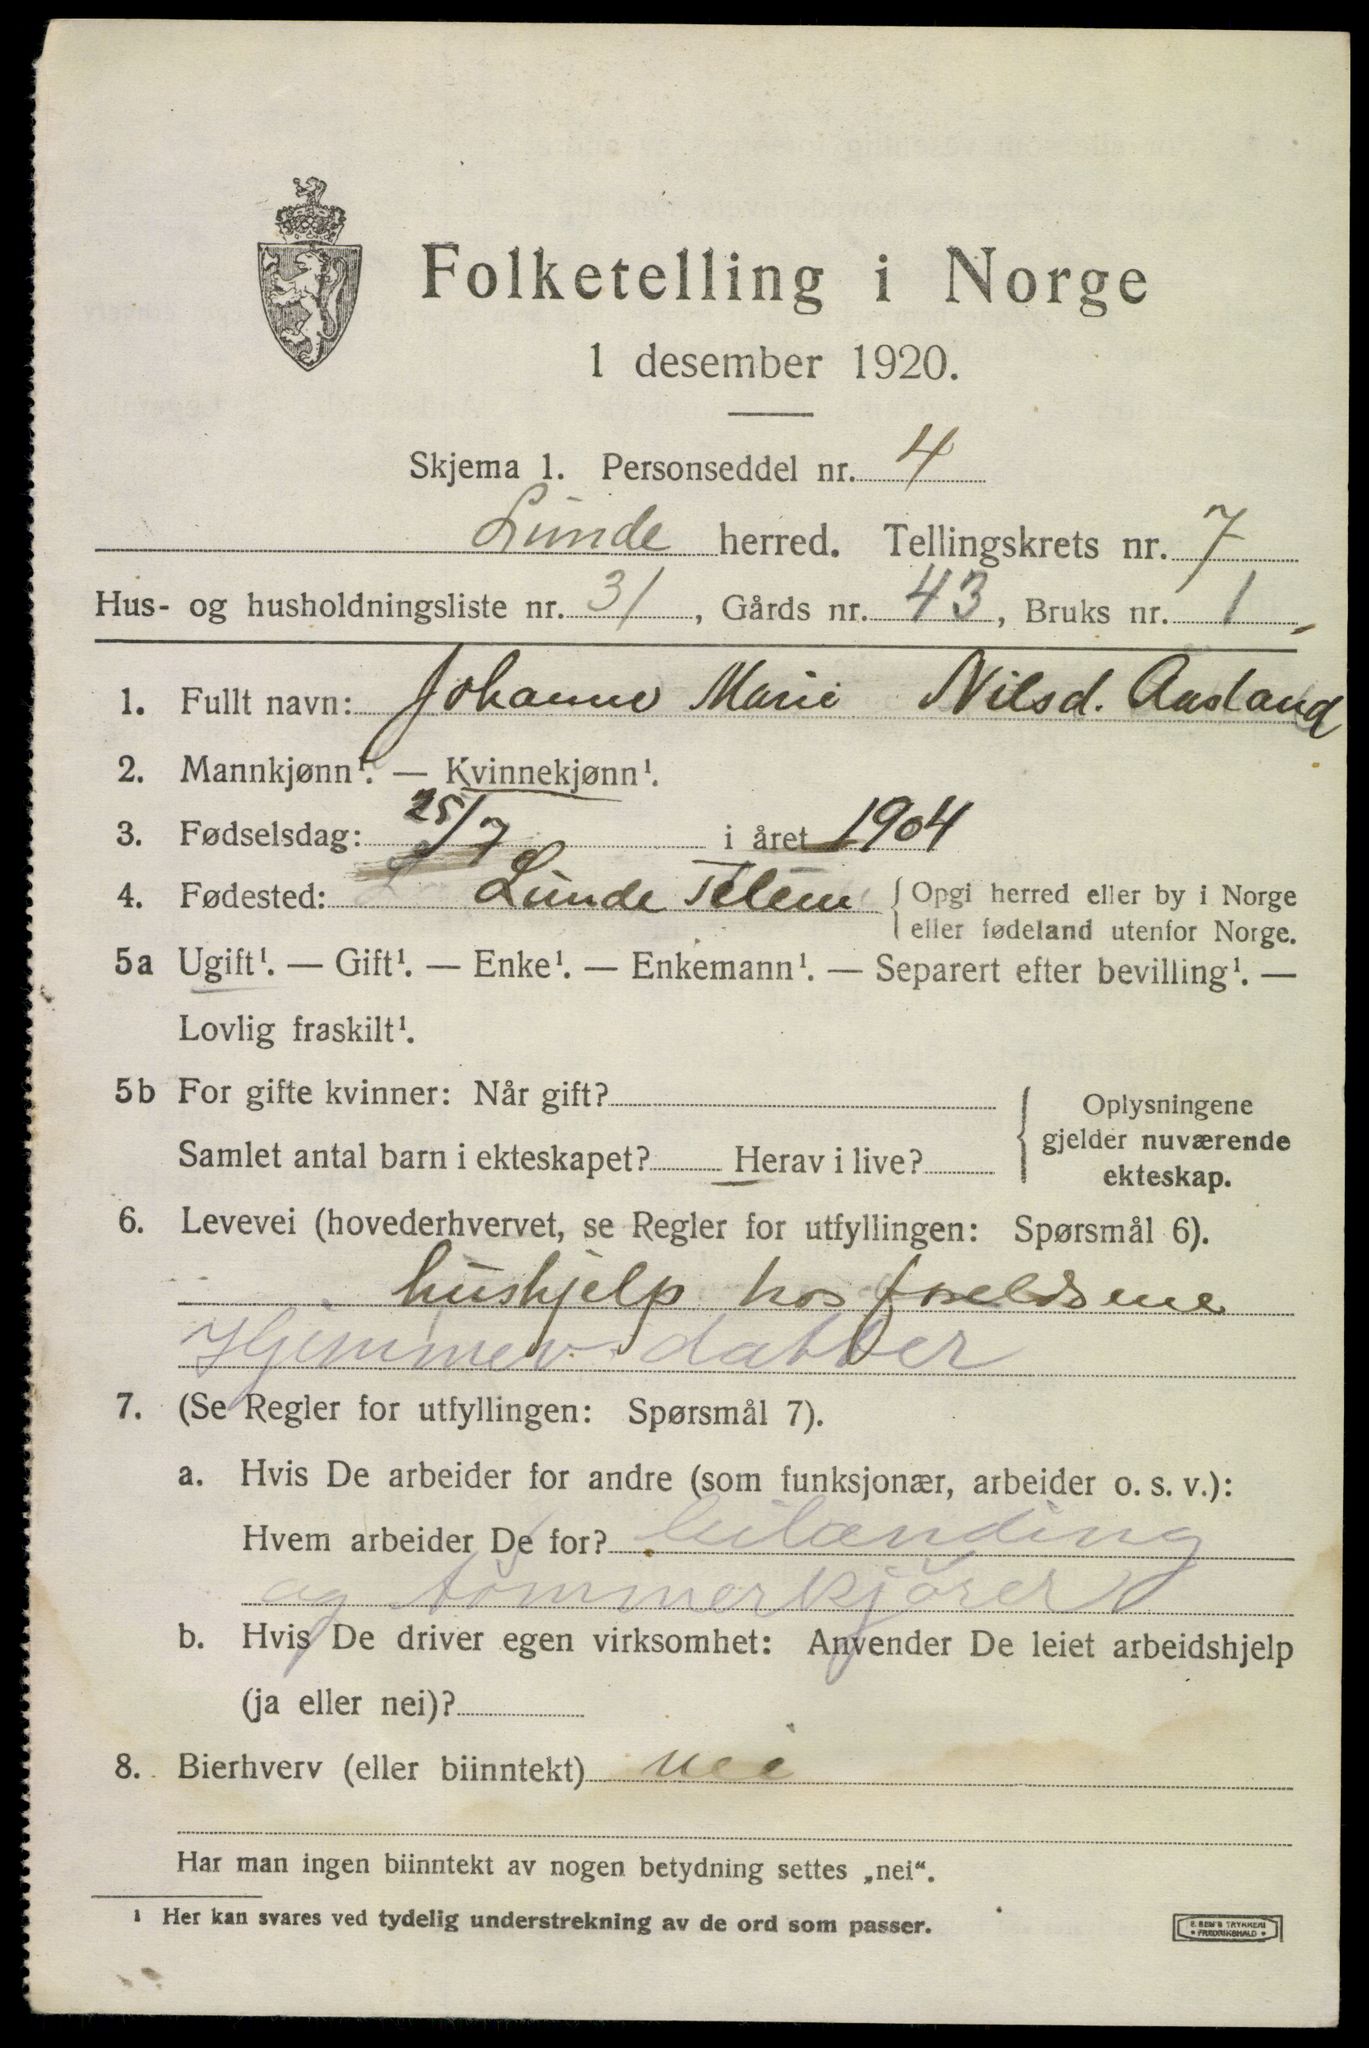 Folketelling i Norge
1 desember 1920.
Skjema 1. Personseddel nr. 4
Lunde herred. Tellingskrets nr. 7
Hus- og husholdningsliste nr. 31, Gårds nr. 43, Bruks nr. 1
1. Fullt navn: Johanne Marie Nilsd. Aasland
2. Mannkjønn¹. — Kvinnekjønn¹.
3. Fødselsdag: 25/7 i året 1904
4. Fødested: Lunde Telem { Opgi herred eller by i Norge
eller fødeland utenfor Norge.
5a Ugift¹. — Gift¹. — Enke¹. — Enkemann¹. — Separert efter bevilling¹. —
Lovlig fraskilt¹.
5b For gifte kvinner: Når gift?
Samlet antal barn i ekteskapet? Herav i live?
Oplysningene
gjelder nuværende
ekteskap.
6. Levevei (hovederhvervet, se Regler for utfyllingen: Spørsmål 6).
hushjelp hos foreldrene
Hjemmev. datter
7. (Se Regler for utfyllingen: Spørsmål 7).
a. Hvis De arbeider for andre (som funksjonær, arbeider o. s. v.):
Hvem arbeider De for? leilænding
og tømmerkjører
b. Hvis De driver egen virksomhet: Anvender De leiet arbeidshjelp
(ja eller nei)?
8. Bierhverv (eller biinntekt) nei
Har man ingen biinntekt av nogen betydning settes „nei“.
¹ Her kan svares ved tydelig understrekning av de ord som passer.
E. SEM'S TRYKKERI
FREDRIKSHALD